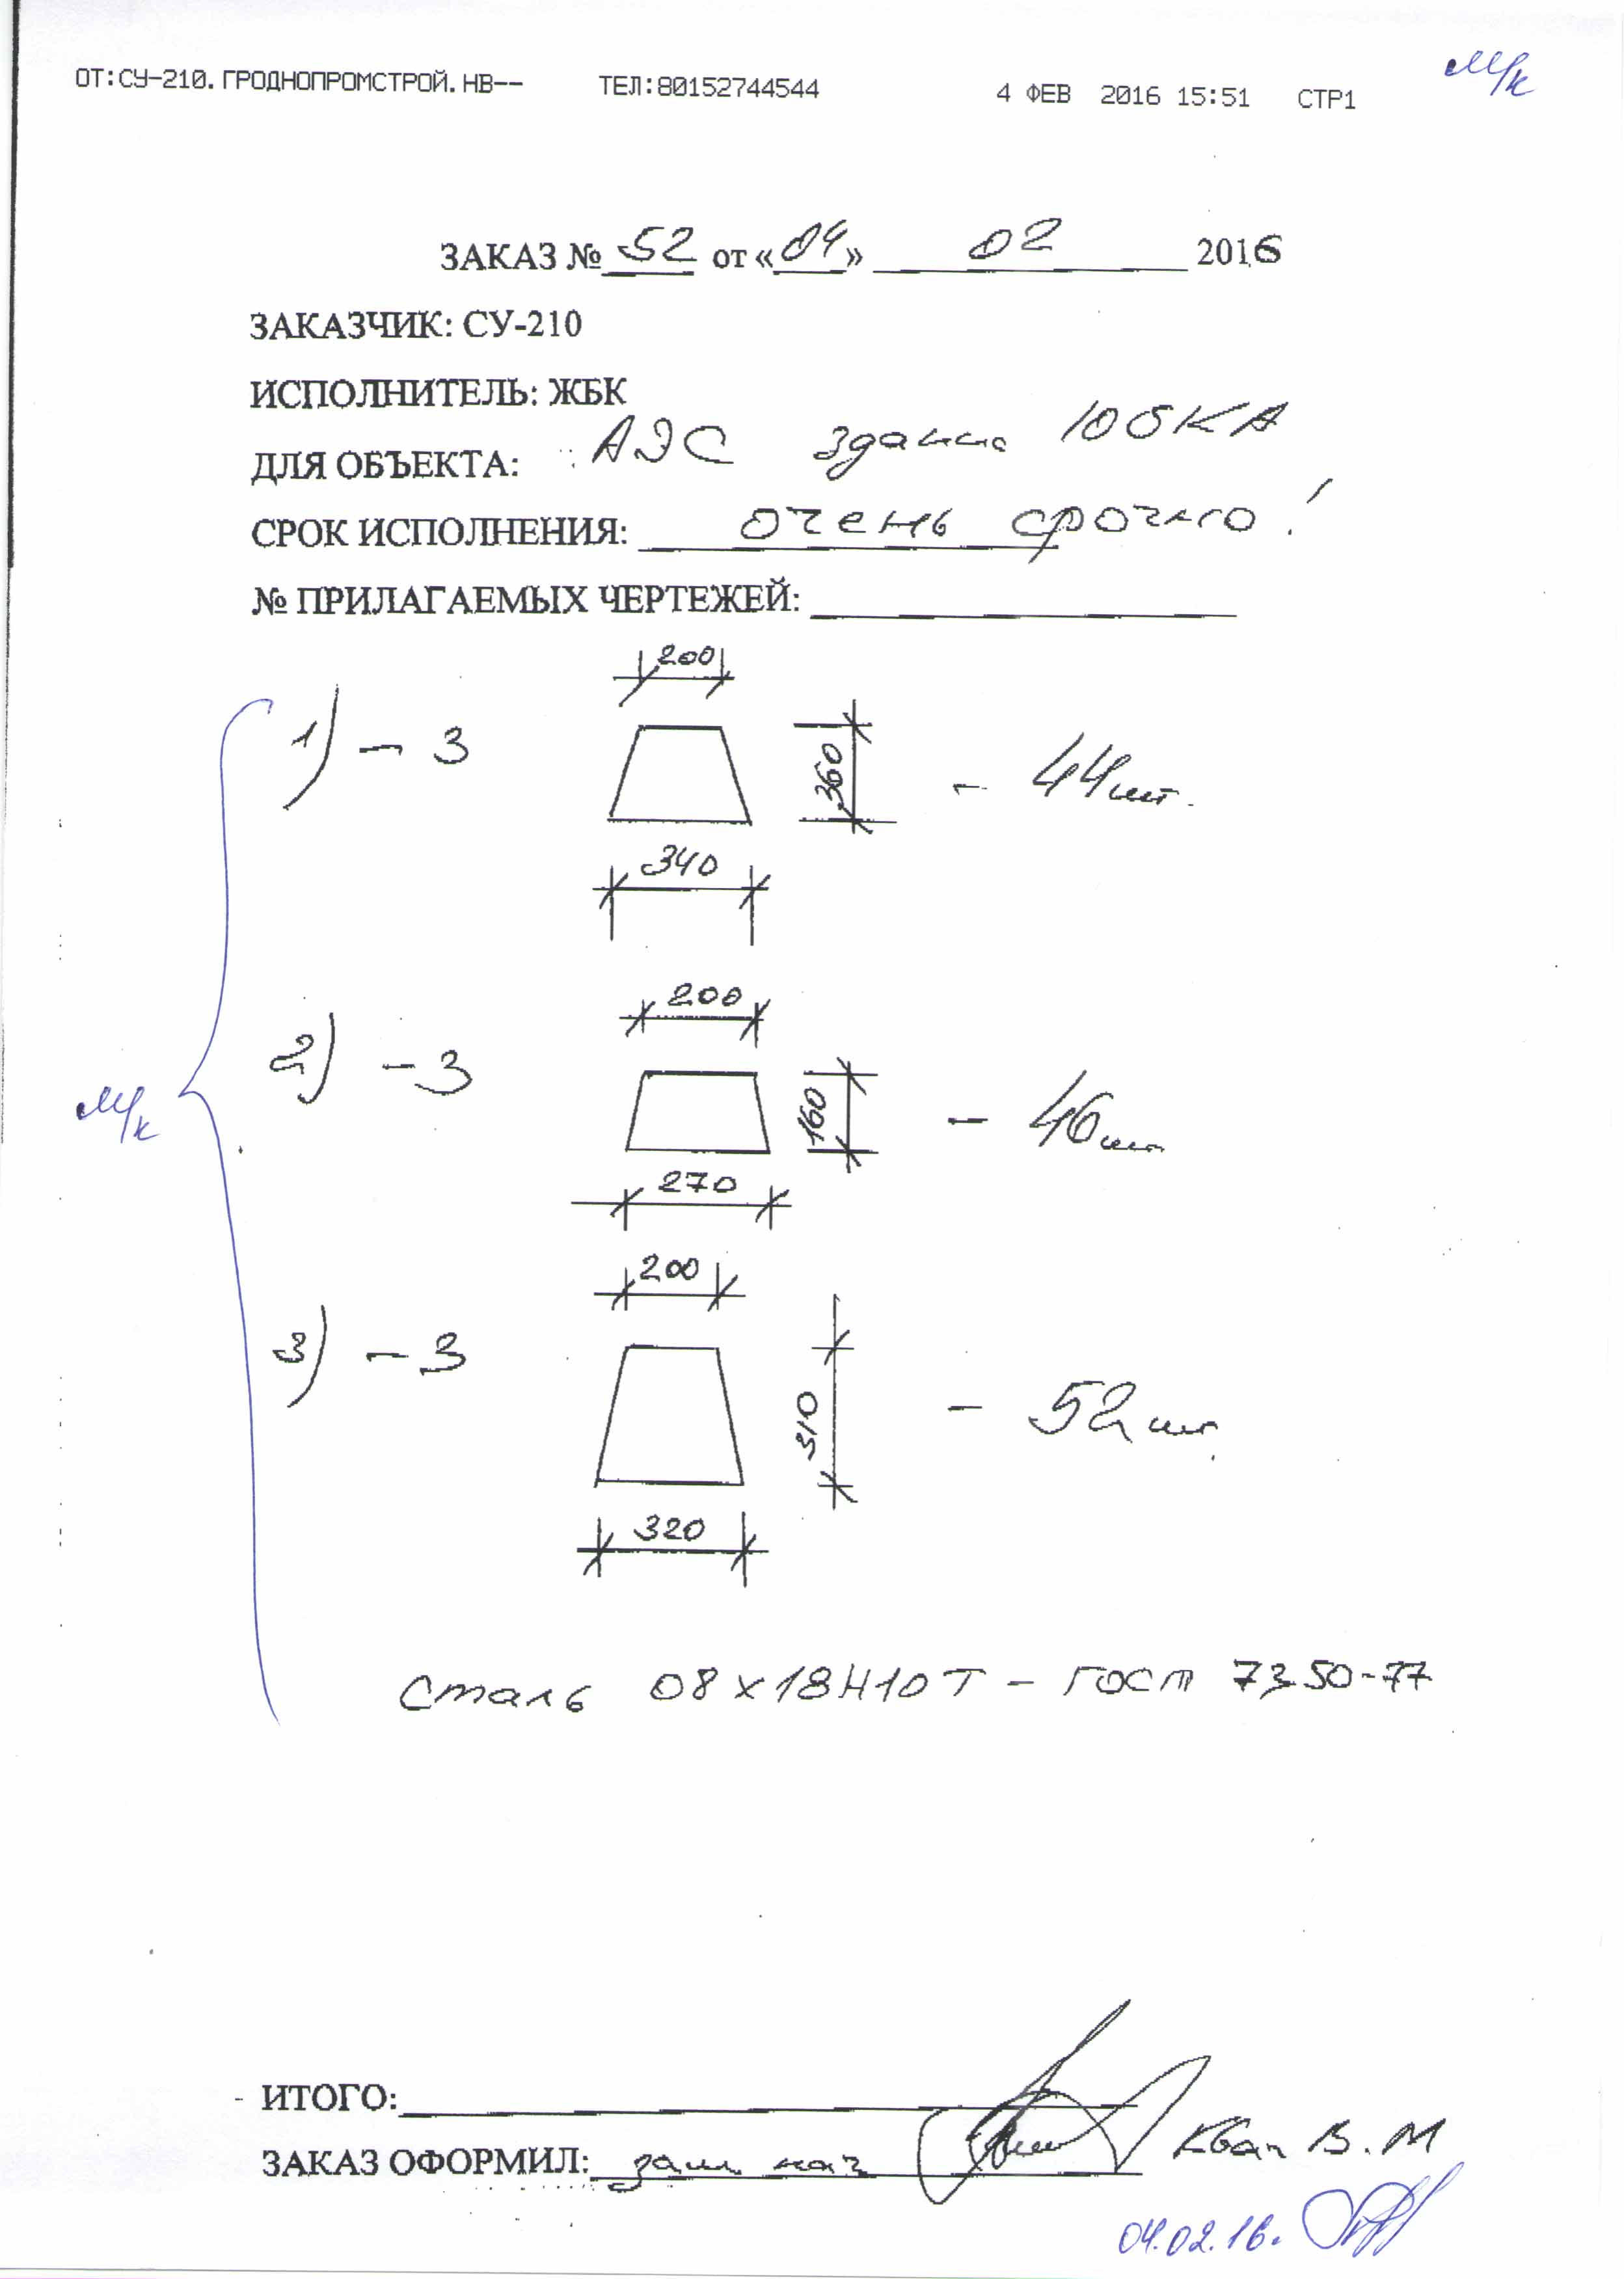 ОТ:СУ-210.ГРОДНОПРОМСТРОЙ.НВ-- ТЕЛ:80152744544 4 ФЕВ 2016 15:51 СТР1
м/к
ЗАКАЗ № 52 от «04» 02 2016
ЗАКАЗЧИК: СУ-210
ИСПОЛНИТЕЛЬ: ЖБК
ДЛЯ ОБЪЕКТА: АЭС здание 10UKA
СРОК ИСПОЛНЕНИЯ: очень срочно!
№ ПРИЛАГАЕМЫХ ЧЕРТЕЖЕЙ:
200
1) - 3 360 - 44 шт.
340
200
2) - 3 160 - 46 шт
м/к
270
200
3) - 3 310 - 52 шт.
320
Сталь 08х18Н10Т - ГОСТ 7350-77
ИТОГО:
ЗАКАЗ ОФОРМИЛ: зам нач В.М
04.02.16.